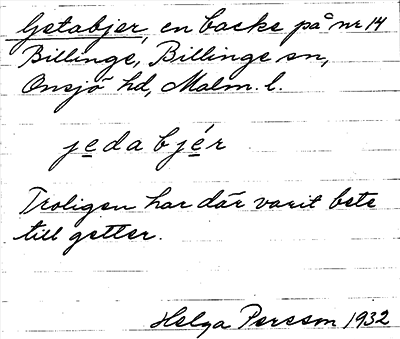 Getabjer, en backe på nr 14
Billinge, Billinge sn,
Onsjö hd, Malm. l.
jedabjér
Troligen har där varit bete
till getter.
Helga Persson 1932